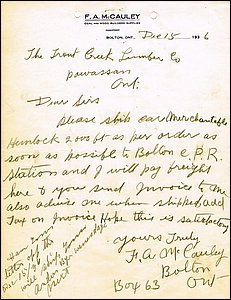 F. A. McCAULEY
COAL AND WOOD BUILDING SUPPLIES
BOLTON, ONT. Dec 15 1936
The Trout Creek Lumber Co
Powassan
Ont.
Dear Sirs
Please ship car Merchantable
Hemlock 2000 ft as per order as
soon as possible to Bolton C.P.R.
Station and I will pay freight
here & you send Invoice to me
also advise me when shipped, add
Tax on Invoice Hope this is satisfactory
Yours Truly
F. A McCauley
Bolton
Box 63 Ont
Have your
letter of the